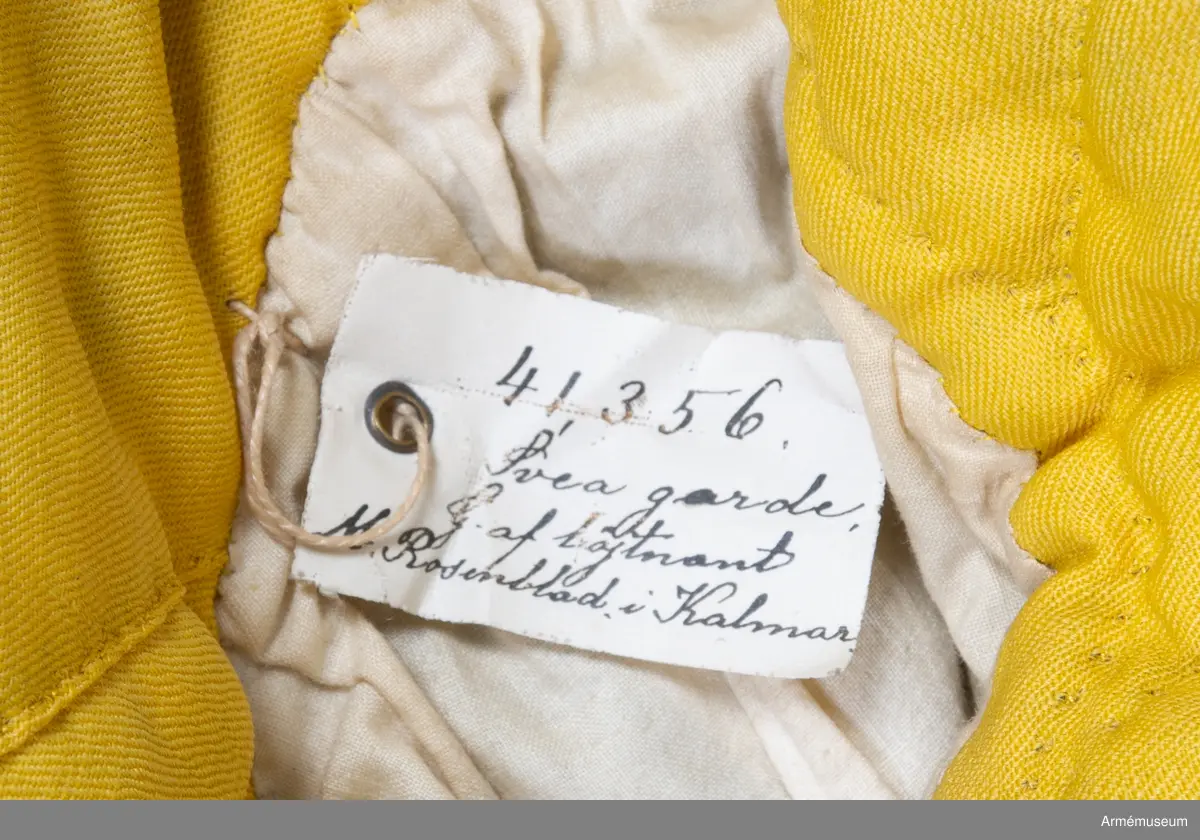 41356.
Svea garde.
G. af löjtnant
M. Rosenblad. i Kalmar
Armémuseum